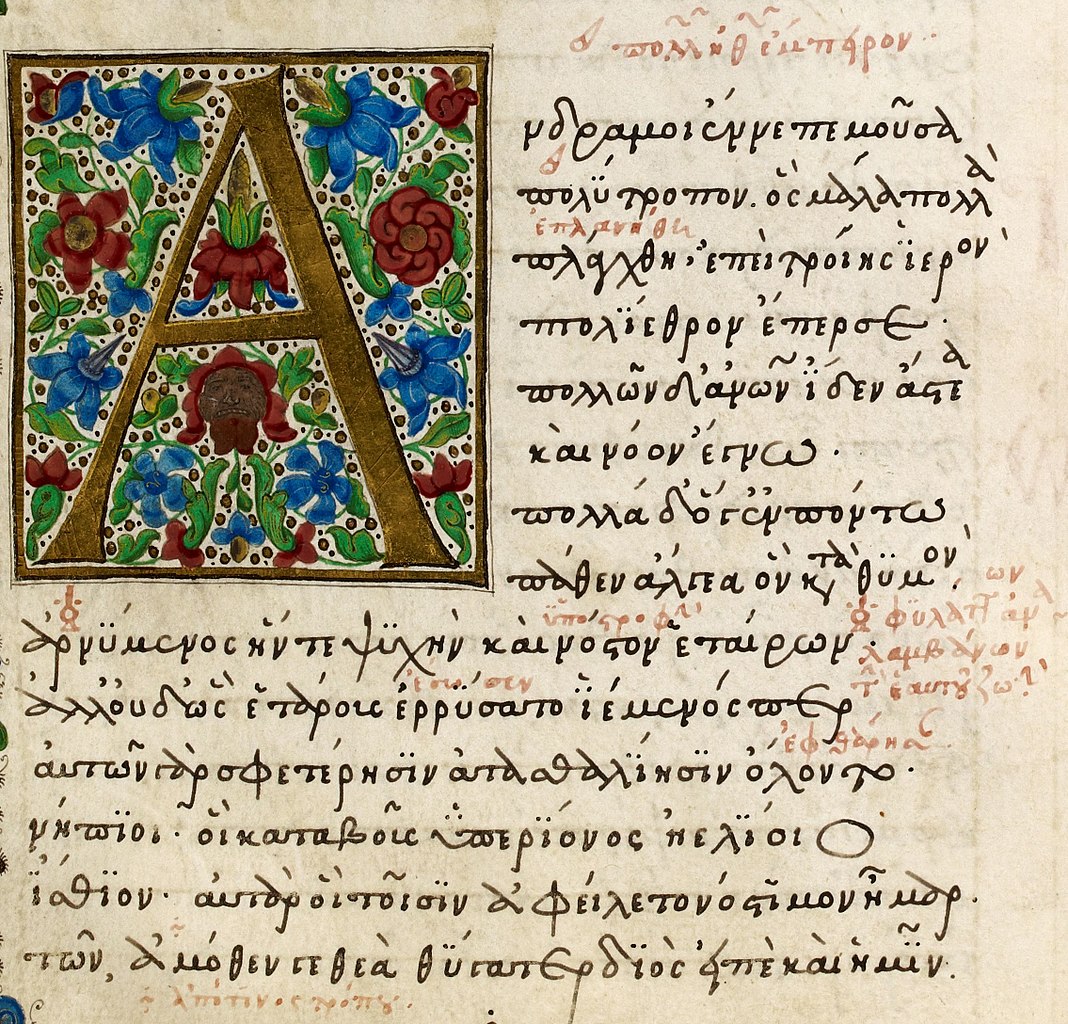 Ἄνδρα μοι ἔννεπε μοῦσα
πολύτροπον. ὃς μάλα πολλὰ
ἐπλανήθη
πλάγχθη, ἐπεὶ τροίης ἱερὸν
πτολίεθρον ἔπερσε.
πολλῶν δ' ἀνθρώπων ἴδεν ἄστεα
καὶ νόον ἔγνω.
πολλὰ δ' ὅγ' ἐν πόντω
πάθεν ἄλγεα ὃν κατὰ θυμόν.
ἀρνύμενος ἥν τε ψυχὴν καὶ νόστον ἑταίρων.
λαμβάνων
ἔσωσεν
ἀλλ' οὐδ' ὣς ἑτάροις ἐρρύσατο ἱέμενός περ
αὐτῶν γὰρ σφετέρησιν ἀτασθαλίησιν ὄλοντο.
νήπιοι. οἳ κατὰ βοῦς ὑπερίονος ἠελίοιο
ἤσθιον. αὐτὰρ ὁ τοῖσιν ἀφείλετο νόστιμον ἦμαρ.
τῶν, ἀμόθεν γε θεὰ θύγατερ διὸς εἰπὲ καὶ ἡμῖν.
ἀπό τινος τρόπου.